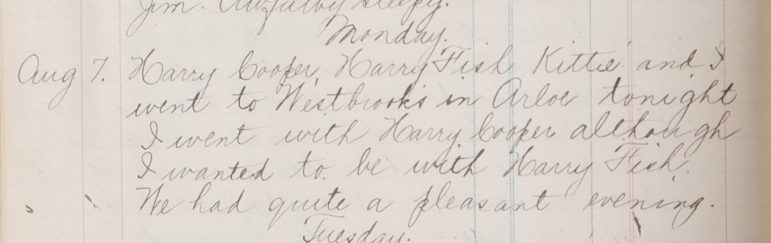 Jim. Awfully sleepy.
Monday.
Aug 7. Harry Cooper, Harry Fish Kittie and I
went to Westbrooks in Arloe tonight
I went with Harry Cooper although
I wanted to be with Harry Fish.
We had quite a pleasant evening.
Tuesday.